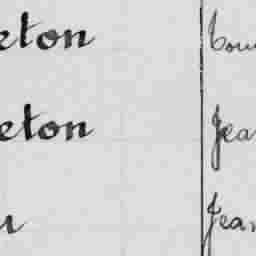 eton Cou
eton Jea
u Jean